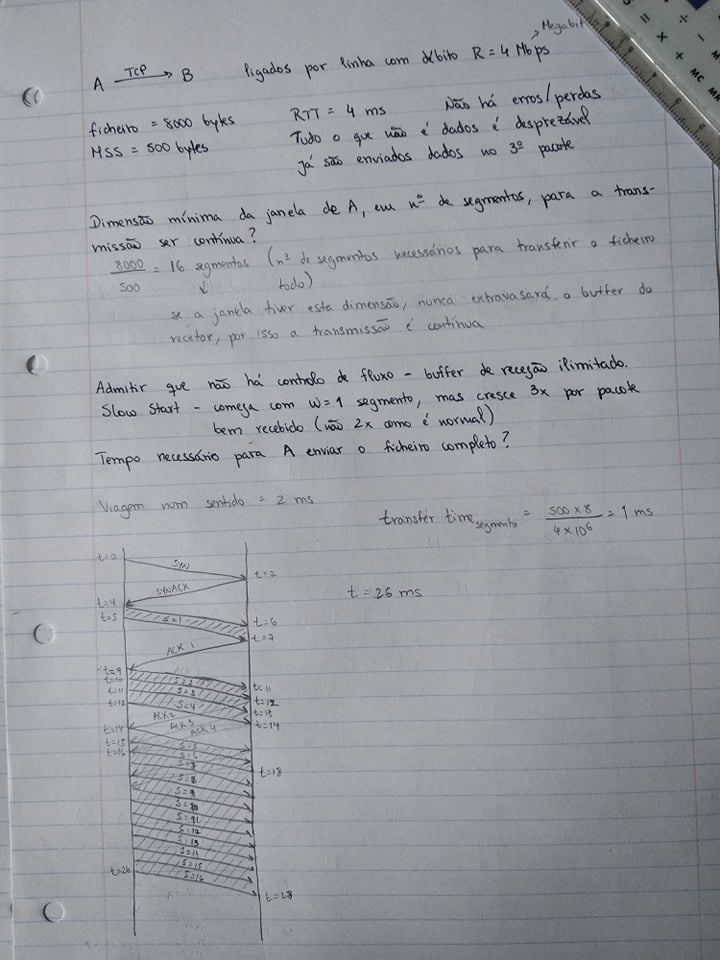 Megabit
A TCP B ligados por linha com débito R = 4 Mbps
ficheiro = 8000 bytes RTT = 4 ms Não há erros/perdas
MSS = 500 bytes Tudo o que não é dados é desprezável
Já são enviados dados no 3º pacote
Dimensão mínima da janela de A, em nº de segmentos, para a trans-
missão ser contínua?
8000/500 = 16 segmentos (nº de segmentos necessários para transferir o ficheiro
todo)
se a janela tiver esta dimensão, nunca extravasará o buffer do
recetor, por isso a transmissão é contínua
Admitir que não há controlo de fluxo - buffer de receção ilimitado.
Slow Start - começa com W = 1 segmento, mas cresce 3x por pacote
bem recebido (não 2x como é normal)
Tempo necessário para A enviar o ficheiro completo?
Viagem num sentido = 2 ms
transfer time segmento = 500 x 8 / 4 x 10^6 = 1 ms
t = 26 ms
t=0
SYN
t=2
SYNACK
t=4
t=5
S=1
t=6
t=7
ACK 1
t=9
t=10
S=2
t=11
t=11
S=3
t=12
t=12
S=4
t=13
ACK2
ACK 3
ACK 4
t=14
t=14
t=15
S=5
t=16
S=6
S=7
t=18
S=8
S=9
S=10
S=11
S=12
S=13
S=14
S=15
t=26
S=16
t=28
+ - = x + MC MR